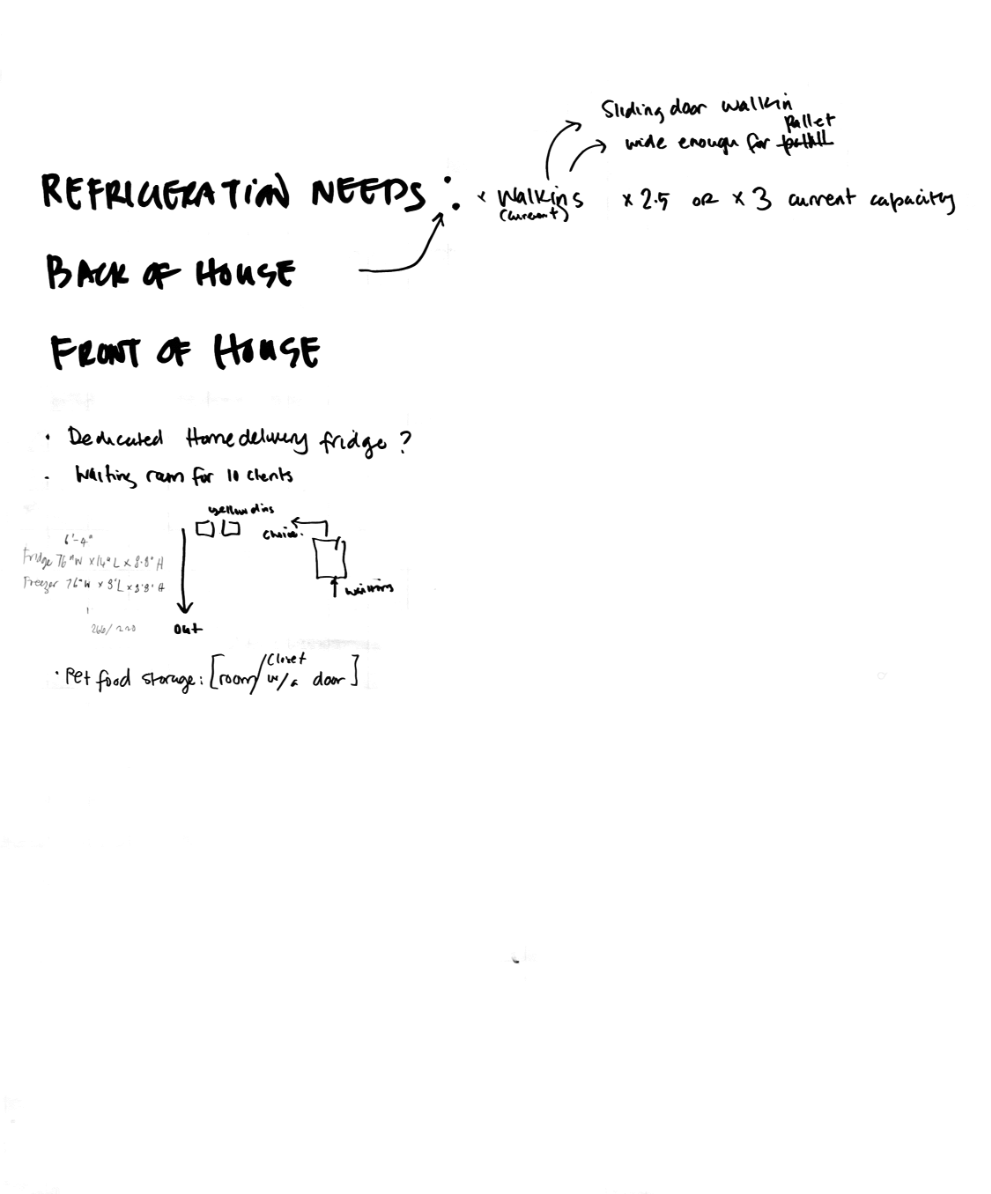 Sliding door walkin
Pallet
wide enough for
REFRIGERATION NEEDS : × Walkins × 2.5 OR × 3 current capacity
(current)
BACK OF HOUSE
FRONT OF HOUSE
• Dedicated Home delivery fridge ?
- Waiting room for 10 clients
yellow bins
choice.
6'-4"
Fridge 76"W × 14" L × 8'8" H
Freezer 76"W × 9'L × 8'8" H
waiting
out
• Pet food storage: [room/closet w/a door]